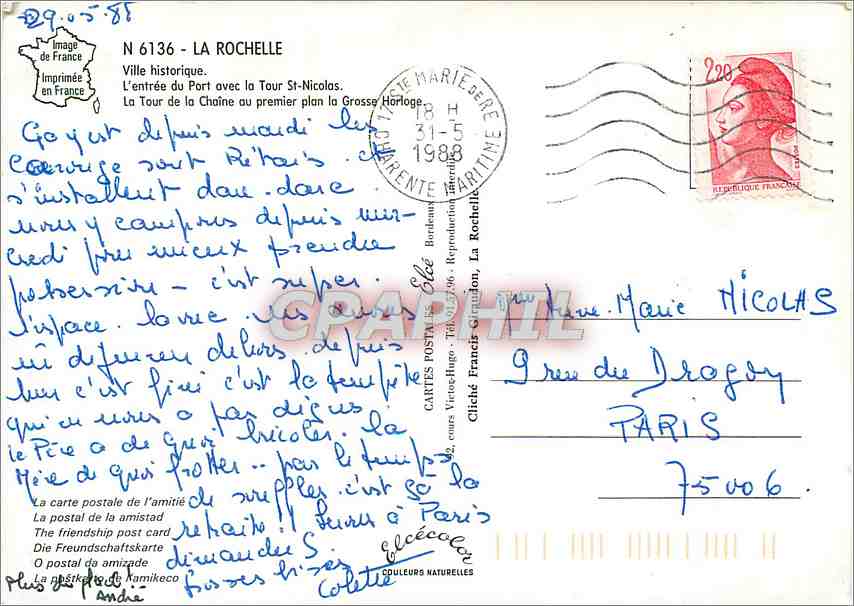 29.05.88
Image
de France
Imprimée
en France
N 6136 - LA ROCHELLE
Ville historique.
L'entrée du Port avec la Tour St-Nicolas.
La Tour de la Chaîne au premier plan la Grosse Horloge.
17 Ste MARIE DE RE
18 H
31-5
1988
CHARENTE MARITIME
2,20
REPUBLIQUE FRANÇAISE
POSTES
Ça y est depuis mardi les
sont Rétais. et
s'installent dare. dare.
nous y campons depuis mer-
credi pour mieux prendre
possession - c'est super.
l'espace.
dehors. depuis
hier c'est fini c'est la tempête
qui ne nous a pas
le Père a de quoi bricoler. la
Mère de quoi frotter.. pas le temps
de souffler. c'est ça la
retraite!! à Paris
dimanche 5.
Grosses bises
Colette
André
CARTES POSTALES Elcé Bordeaux
42, cours Victor-Hugo - Tél. 91.57.96 - Reproduction interdite
Cliché Francis Giraudon, La Rochelle
CPARPHIL
Anne-Marie NICOLAS
9 rue du Dragon
PARIS
75006.
La carte postale de l'amitié
La postal de la amistad
The friendship post card
Die Freundschaftskarte
O postal da amizade
La postkarto de l'amikeco
Elcécolor
COULEURS NATURELLES